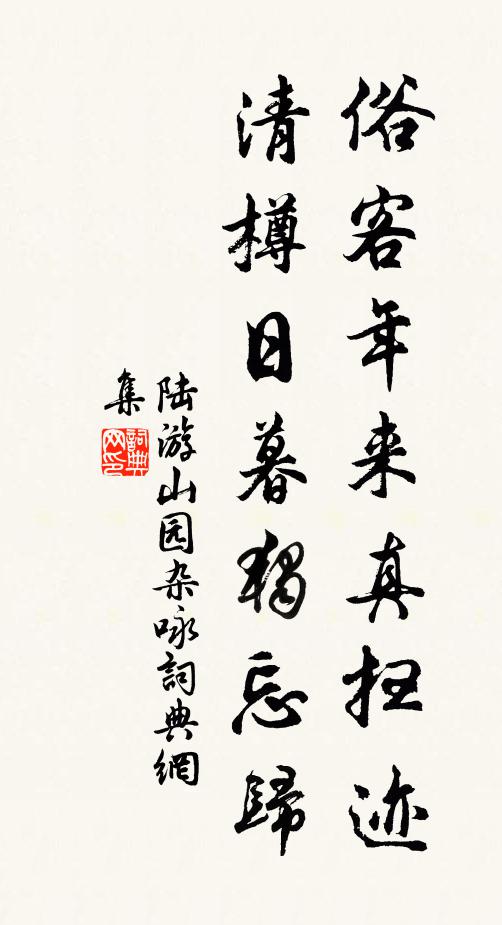 俗客年来真扫迹
清樽日暮独忘歸
陆游山园杂咏詞典網
集
詞典网印